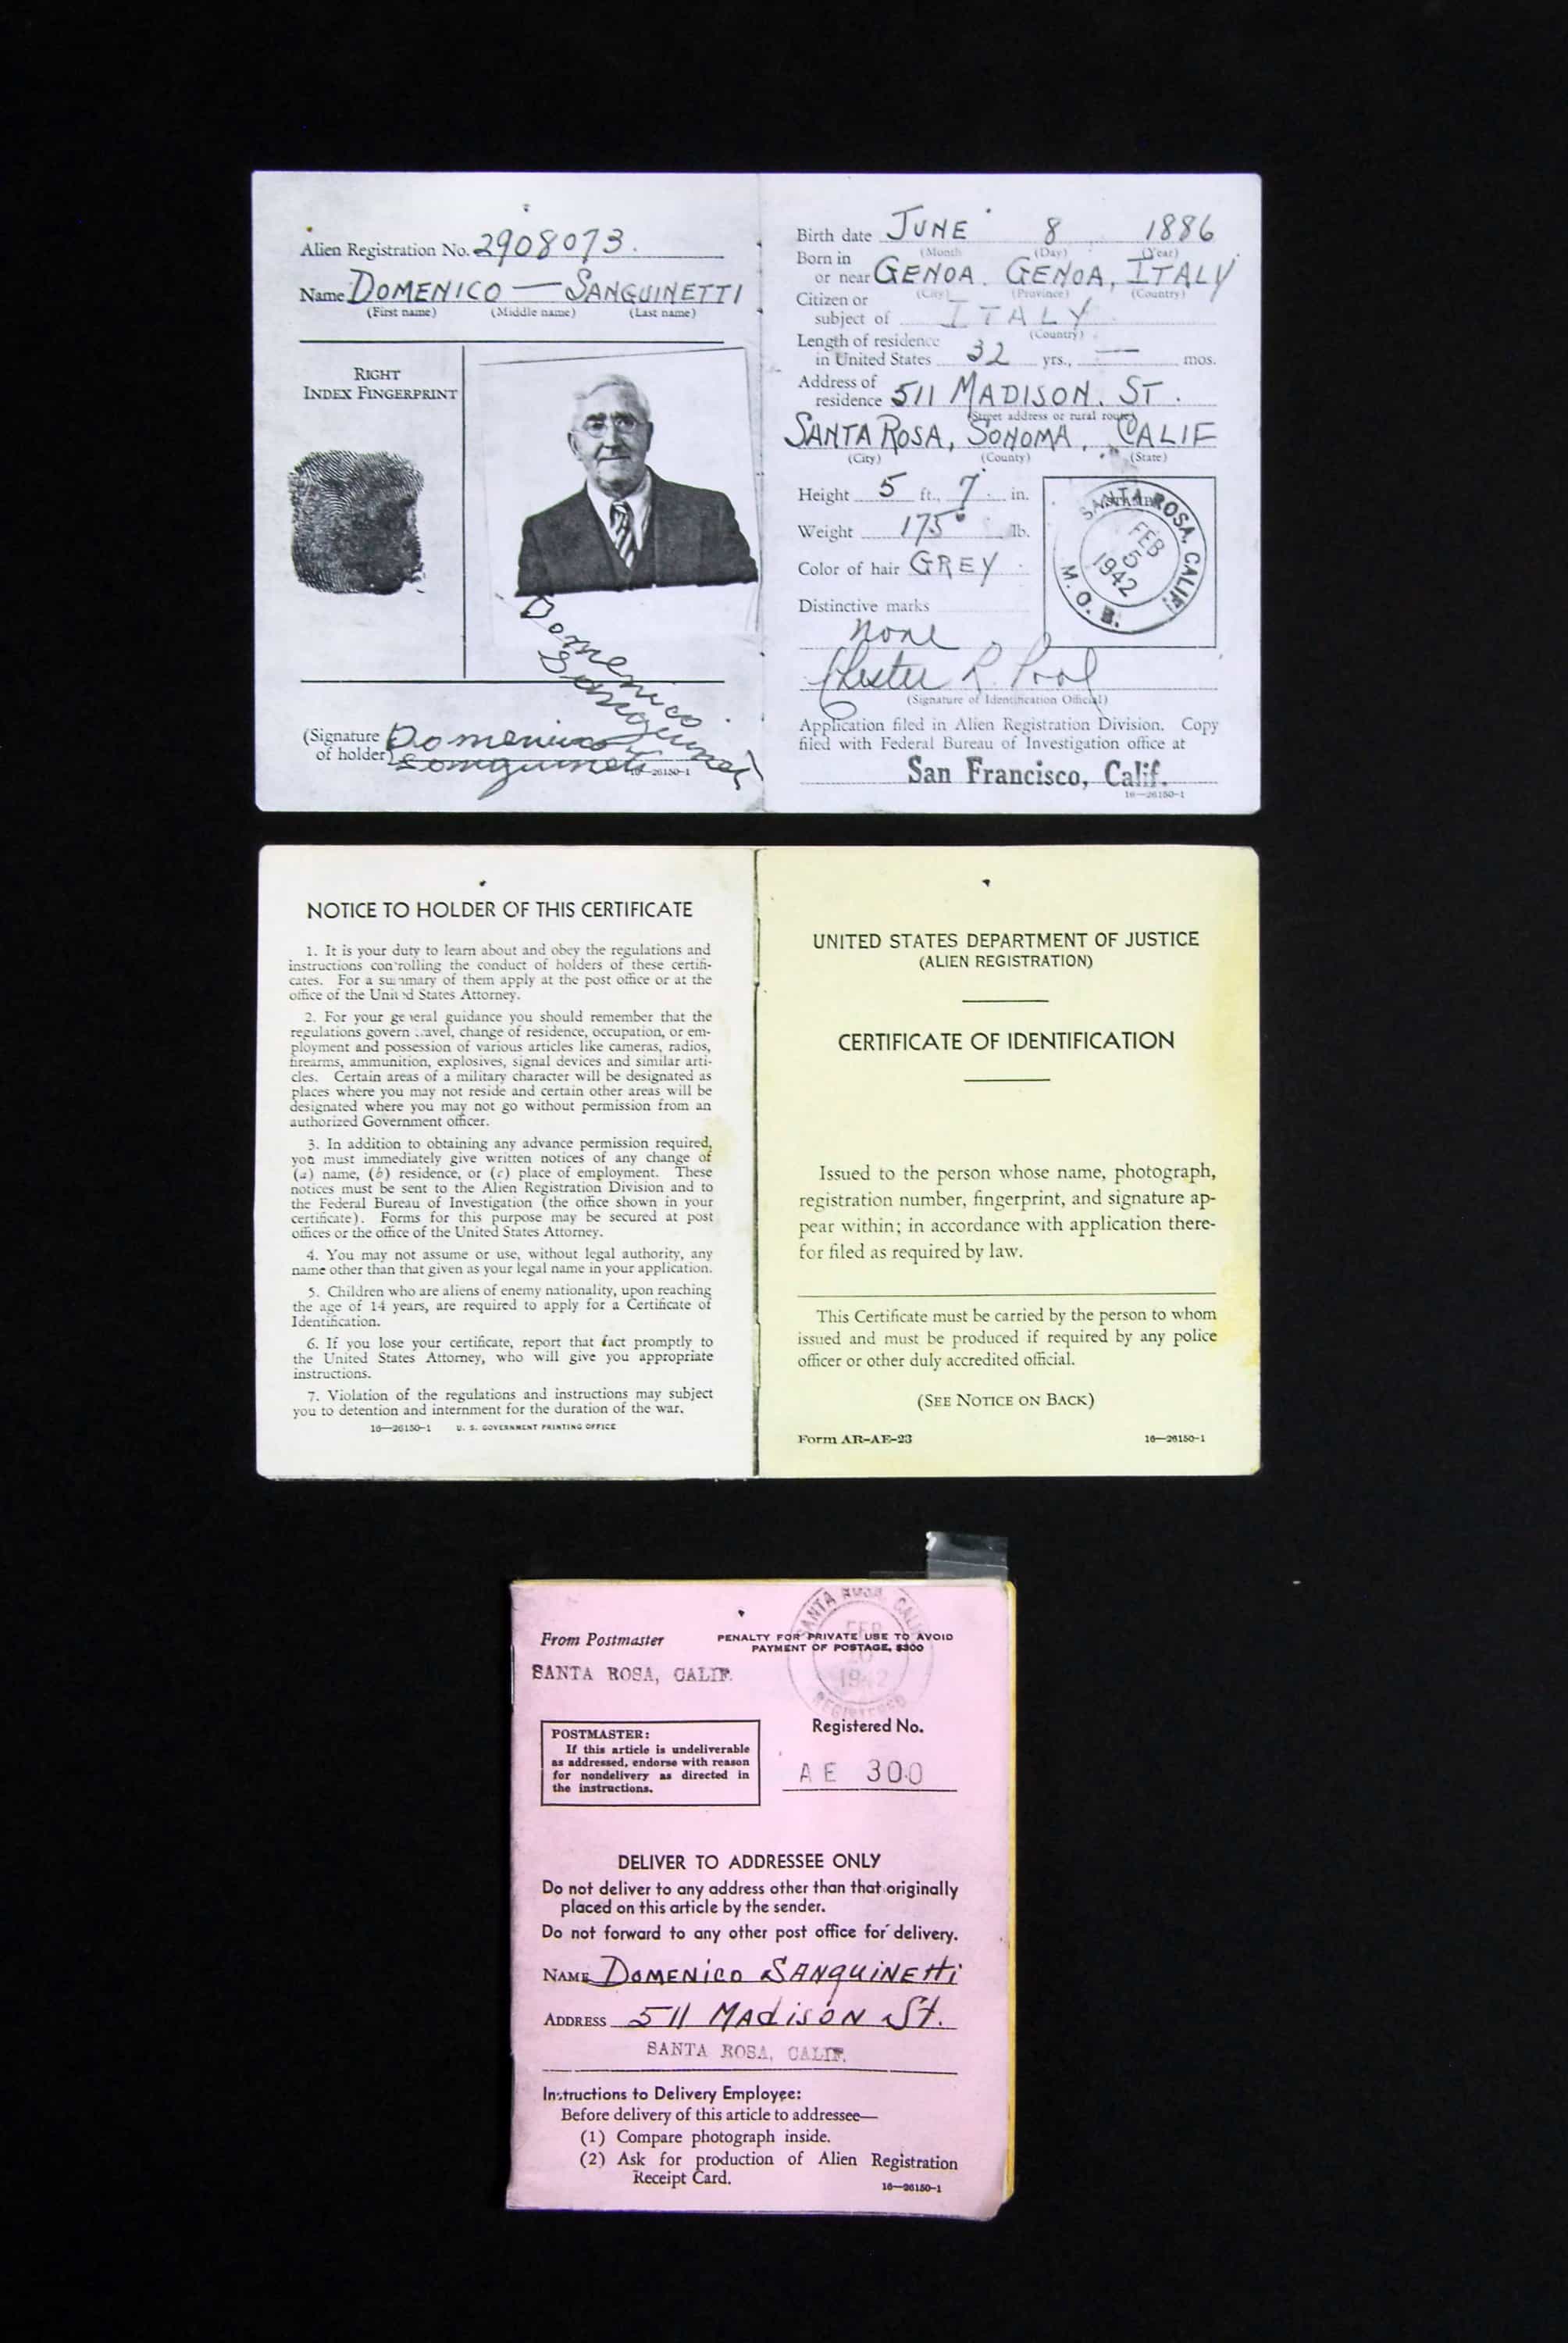 Alien Registration No. 2908073.
Name DOMENICO — SANGUINETTI
(First name) (Middle name) (Last name)
RIGHT
INDEX FINGERPRINT
Domenico
Sanguinet
(Signature
of holder) Domenico
Sanguineti
16—26150-1
Birth date JUNE 8 1886
(Month (Day) (Year)
Born in
or near GENOA. GENOA, ITALY
(City) (Province) (Country)
Citizen or
subject of ITALY
(Country)
Length of residence
in United States 32 yrs., — mos.
Address of
residence 511 MADISON. ST.
(Street address or rural route)
SANTA ROSA, SONOMA, CALIF
(City) (County) (State)
Height 5 ft., 7 in.
Weight 175 lb.
Color of hair GREY
Distinctive marks
none
SANTA ROSA, CALIF.
FEB
5
1942
M. O. B.
Chester R. Pool
(Signature of Identification Official)
Application filed in Alien Registration Division. Copy
filed with Federal Bureau of Investigation office at
San Francisco, Calif.
16—26150-1
NOTICE TO HOLDER OF THIS CERTIFICATE
1. It is your duty to learn about and obey the regulations and
instructions controlling the conduct of holders of these certifi-
cates. For a summary of them apply at the post office or at the
office of the United States Attorney.
2. For your general guidance you should remember that the
regulations govern travel, change of residence, occupation, or em-
ployment and possession of various articles like cameras, radios,
firearms, ammunition, explosives, signal devices and similar arti-
cles. Certain areas of a military character will be designated as
places where you may not reside and certain other areas will be
designated where you may not go without permission from an
authorized Government officer.
3. In addition to obtaining any advance permission required,
you must immediately give written notices of any change of
(a) name, (b) residence, or (c) place of employment. These
notices must be sent to the Alien Registration Division and to
the Federal Bureau of Investigation (the office shown in your
certificate). Forms for this purpose may be secured at post
offices or the office of the United States Attorney.
4. You may not assume or use, without legal authority, any
name other than that given as your legal name in your application.
5. Children who are aliens of enemy nationality, upon reaching
the age of 14 years, are required to apply for a Certificate of
Identification.
6. If you lose your certificate, report that fact promptly to
the United States Attorney, who will give you appropriate
instructions.
7. Violation of the regulations and instructions may subject
you to detention and internment for the duration of the war.
16—26150-1 U. S. GOVERNMENT PRINTING OFFICE
UNITED STATES DEPARTMENT OF JUSTICE
(ALIEN REGISTRATION)
CERTIFICATE OF IDENTIFICATION
Issued to the person whose name, photograph,
registration number, fingerprint, and signature ap-
pear within; in accordance with application there-
for filed as required by law.
This Certificate must be carried by the person to whom
issued and must be produced if required by any police
officer or other duly accredited official.
(SEE NOTICE ON BACK)
Form AR-AE-23 16—26150-1
From Postmaster
SANTA ROSA, CALIF.
PENALTY FOR PRIVATE USE TO AVOID
PAYMENT OF POSTAGE, $300
SANTA ROSA, CALIF
FEB
20
1942
REGISTERED
POSTMASTER:
If this article is undeliverable
as addressed, endorse with reason
for nondelivery as directed in
the instructions.
Registered No.
AE 300
DELIVER TO ADDRESSEE ONLY
Do not deliver to any address other than that originally
placed on this article by the sender.
Do not forward to any other post office for delivery.
NAME DOMENICO SANQUINETTI
ADDRESS 511 MADISON St.
SANTA ROSA, CALIF.
Instructions to Delivery Employee:
Before delivery of this article to addressee—
(1) Compare photograph inside.
(2) Ask for production of Alien Registration
Receipt Card.
16—26150-1